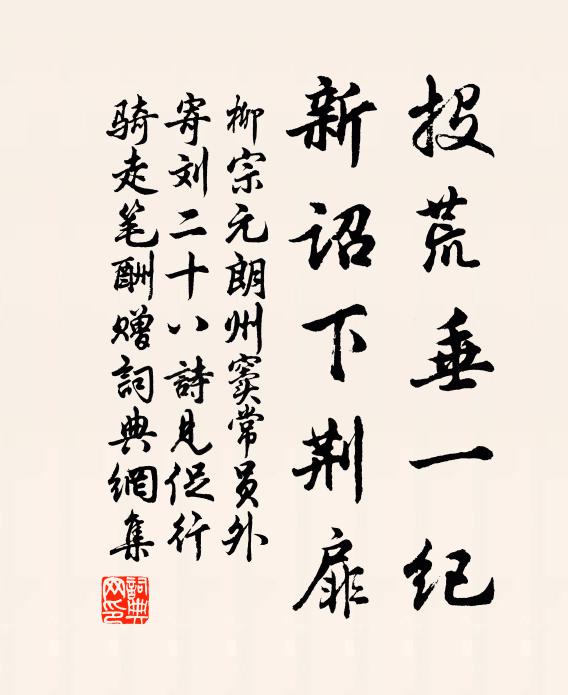 投荒垂一纪
新诏下荆扉
柳宗元朗州窦常员外
寄刘二十八詩見促行
骑走笔酬赠詞典網集
詞典
网印